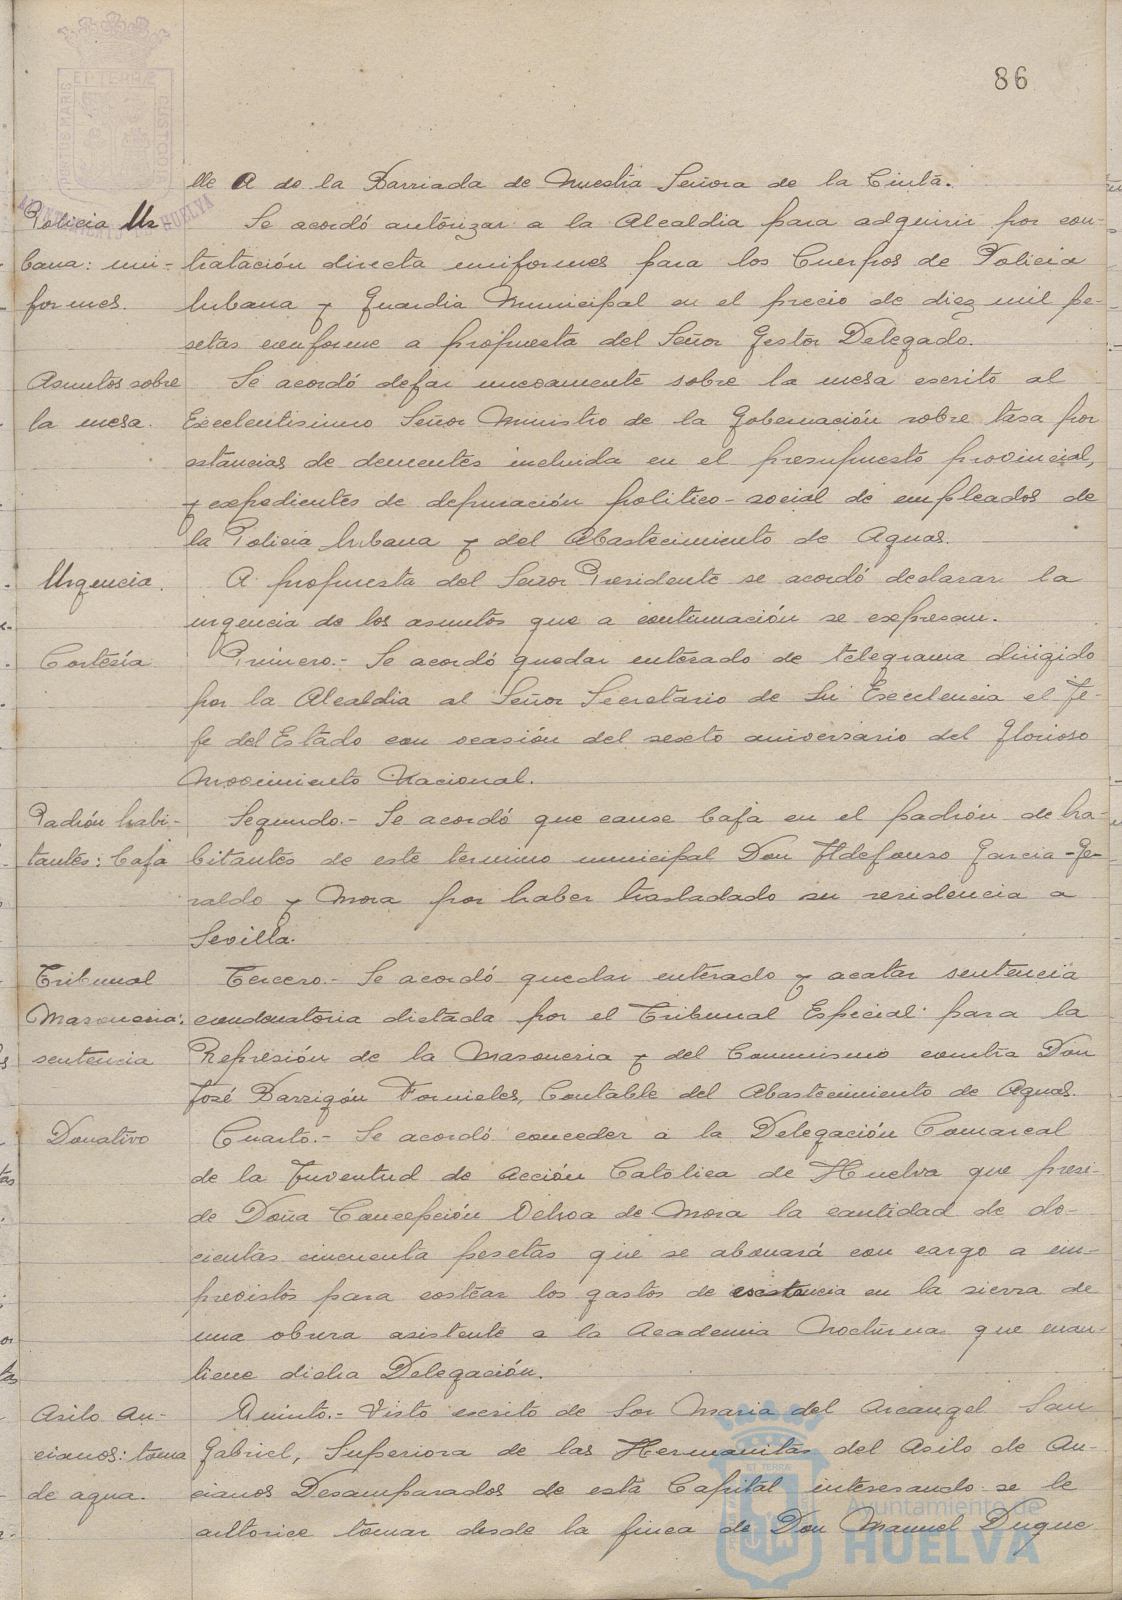 86
PORTUS MARIS ET TERRÆ CUSTOS
AYUNTAMIENTO DE HUELVA
lle A de la Barriada de Nuestra Señora de la Cinta.
Policia Ur
bana: uni-
formes.
Se acordó autorizar a la Alcaldia para adquirir por con-
tratación directa uniformes para los Cuerpos de Policia
Urbana y Guardia Municipal en el precio de diez mil pe-
setas conforme a propuesta del Señor Gestor Delegado.
Asuntos sobre
la mesa.
Se acordó dejar nuevamente sobre la mesa escrito al
Excelentisimo Señor Ministro de la Gobernación sobre tasa por
estancias de dementes incluida en el presupuesto provincial,
y expedientes de depuración politico-social de empleados de
la Policia Urbana y del Abastecimiento de Aguas.
Urgencia.
A propuesta del Señor Presidente se acordó declarar la
urgencia de los asuntos que a continuación se expresan.
Cortesía
Primero.- Se acordó quedar enterado de telegrama dirigido
por la Alcaldia al Señor Secretario de Su Excelencia el Je-
fe del Estado con ocasión del sexto aniversario del Glorioso
Movimiento Nacional.
Padrón habi-
tantes: baja
Segundo.- Se acordó que cause baja en el padrón de ha-
bitantes de este termino municipal Don Ildefonso Garcia-Ge-
raldo y Mora por haber trasladado su residencia a
Sevilla.
Tribunal
Masoneria:
sentencia
Tercero.- Se acordó quedar enterado y acatar sentencia
condenatoria dictada por el Tribunal Especial para la
Represión de la Masoneria y del Comunismo contra Don
José Barrigón Fornieles, Contable del Abastecimiento de Aguas.
Donativo
Cuarto.- Se acordó conceder a la Delegación Comarcal
de la Juventud de Acción Católica de Huelva que presi-
de Doña Concepción de Mora la cantidad de do-
cientas cincuenta pesetas que se abonará con cargo a im-
previstos para costear los gastos de estancia en la sierra de
una obrera asistente a la Academia Nocturna que man-
tiene dicha Delegación.
Asilo An-
cianos: toma
de agua.
Quinto.- Visto escrito de Sor Maria del Arcangel San
Gabriel, Superiora de las Hermanitas del Asilo de An-
cianos Desamparados de esta Capital interesando se le
autorice tomar desde la finca de Don Manuel Duque
Ayuntamiento de
HUELVA